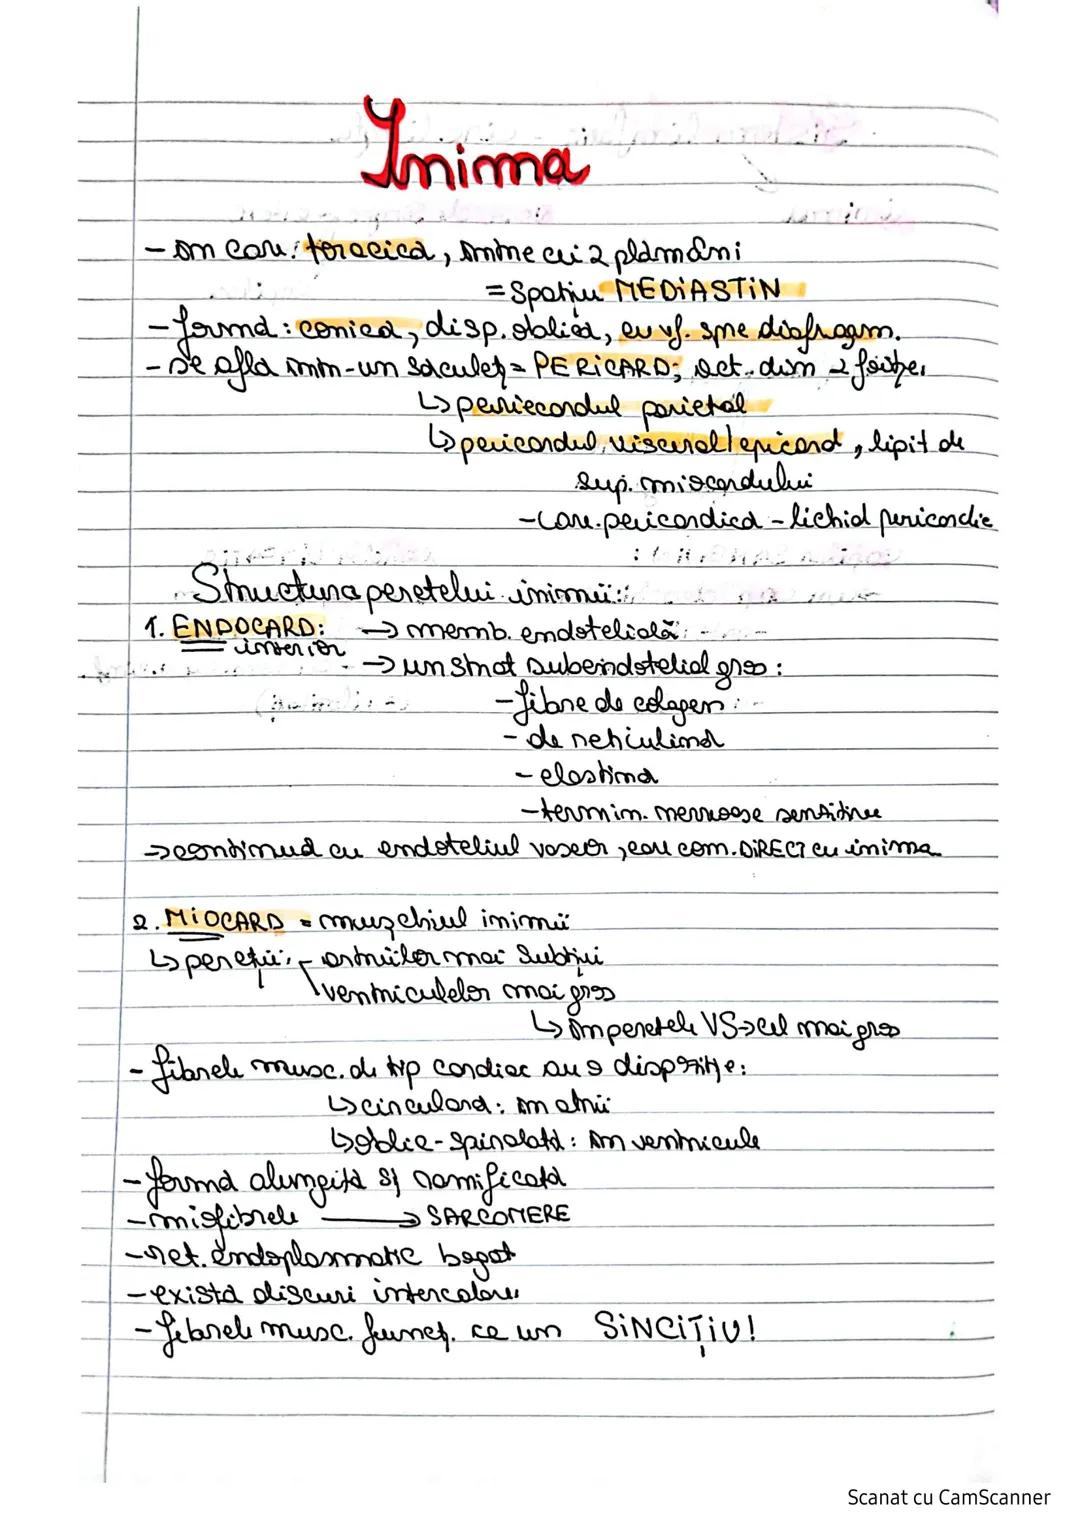 Inima
- în cav. toracică, între cei 2 plămâni
= Spațiu MEDIASTIN
- formă: conică, disp. oblică, cu vf. spre diafragm.
- se află într-un săculeț = PERICARD; alct. din 2 foițe:
↳ pericardul parietal
↳ pericardul visceral/epicard, lipit de
sup. miocardului
- cav. pericardică - lichid pericardic
Structura peretelui inimii:
1. ENDOCARD: → memb. endotelială
interior
→ un strat subendotelial gros:
- fibre de colagen
- de reticulină
- elastină
- termin. nervoase senzitive
→ continuă cu endoteliul vaselor, care com. DIRECT cu inima
2. MIOCARD = mușchiul inimii
↳ pereții: - atriilor mai subțiri
ventriculelor mai groși
↳ în peretele VS → cel mai gros
- fibrele musc. de tip cardiac au o dispoziție:
↳ circulară: în atrii
↳ oblic-spiralată: în ventricule
- formă alungită și ramificată
- miofibrele → SARCOMERE
- ret. endoplasmatic bogat
- există discuri intercalare
- fibrele musc. funcț. ca un SINCIȚIU!
Scanat cu CamScanner